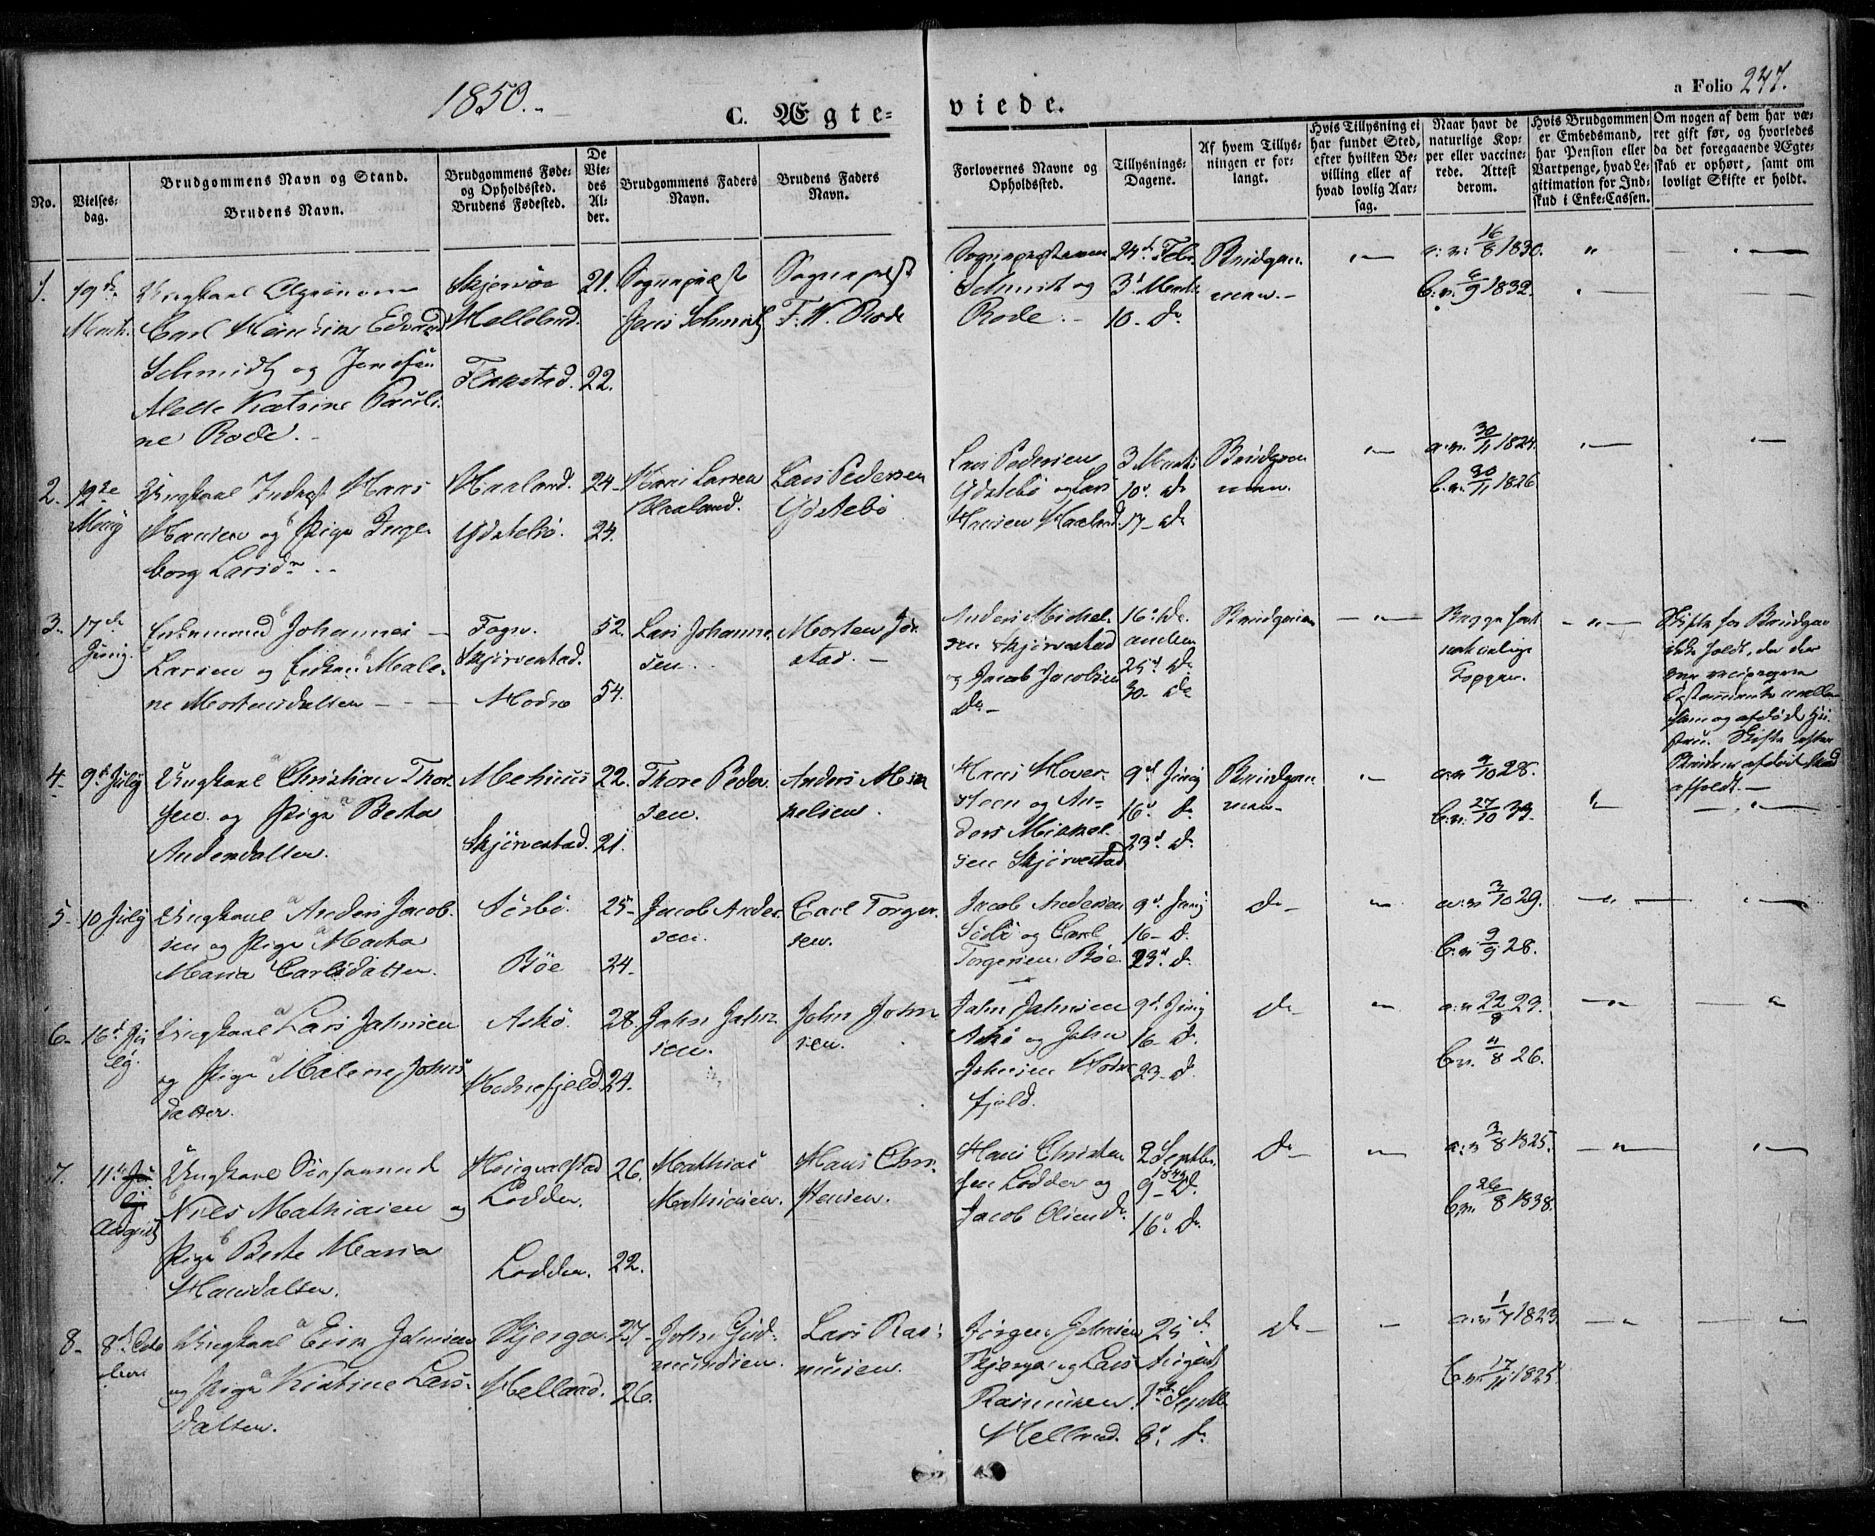 1850.
C. Ægte-
viede.
a Folio 247.
No.
Vielses-
dag.
Brudgommens Navn og Stand.
Brudens Navn.
Brudgommens Føde-
og Opholdssted.
Brudens Fødested.
De
Vie-
des
Al-
der.
Brudgommens Faders
Navn.
Brudens Faders
Navn.
Forlovernes Navne og
Opholdssted.
Tillysnings-
Dagene.
Af hvem Tillys-
ningen er for-
langt.
Hvis Tillysning ei
har fundet Sted,
efter hvilken Be-
villing eller af
hvad lovlig Aar-
sag.
Naar havt de
naturlige Kop-
per eller vaccine-
rede. Attest
derom.
Hvis Brudgommen
er Embedsmand,
har Pension eller
Vartpenge, hvad Le-
gitimation for Ind-
skud i Enke-Cassen.
Om nogen af dem har væ-
ret gift før, og hvorledes
da det foregaaende Ægte-
skab er ophørt, samt om
lovligt Skifte er holdt.
1.
19de
Marts.
Ungkarl
Carl Edvard
Schmidt og
Katrine Pauli-
ne Rode.
Skjervøe
Helleland.
Flakstad.
21.
22.
Sognepræst
Jens Schmidt
Sognepræst
F. W. Rode
Sognepræsterne
Schmidt og
Rode.
24d Febr.
3d Marts
10. do
Brudgom-
men.
a. v. 16/8 1830.
b. v. 6/9 1832.
2.
Ungkarl Hans
Hansen og Pige Inge-
borg Larsdr
Haaland.
Ydstebø.
24.
24.
Hans Larsen
Haaland.
Lars Pedersen
Ydstebø
Lars Pedersen
Ydstebø og Lars
Hansen Haaland.
3 Marts
10d do
17- do
Brudgom-
men.
a. v. 30/11 1824.
b. v. 30/11 1826
3.
17de
Juny.
Enkemand Johannes
Larsen og Enken Male-
ne Mortensdatter
Fogn.
Skjørvestad.
Hodne
52.
54.
Lars Johanne-
sen.
Morten
Anders Mickel-
sen Skjørvestad
og Jacob Jacobsen
Do
25d do
30- do
Brudgommen
Begge havt
naturlige
Kopper.
Skifte for Brudgom
ikke holdt, da der
var
Testamente mellem
ham og afdøde Hu-
stru. Skifte efter
Brudens afdøde Mand
afholdt.
4.
9d July
Ungkarl Christian Thor-
sen og Pige Berta
Andersdatter.
Mehuus
Skjørvestad.
22.
21.
Thore Peder-
sen.
Anders Mic-
kelsen.
Hans
og An-
ders Mickel-
sen Skjørvestad
9d Juny
16d do
23d do
Brudgom-
men
a. v. 9/10 28.
b. v. 27/10 33.
5.
10 July
Ungkarl Anders Jacob-
sen og Pige Marta
Maria Carlsdatter.
Sørbø.
Bøe
25.
24.
Jacob Ander-
sen.
Carl Torger-
sen.
Jacob Andersen
Sørbø og Carl
Torgersen Bøe.
9d Juny
16- do
23d do
do
a. v. 3/10 29.
b. v. 9/9 28.
6.
16d Ju-
ly.
Ungkarl Lars Johnsen
og Pige Malene Johns-
datter.
Askø.
Hodnefjeld
28.
24.
John John-
sen.
John John-
sen.
John Johnsen
Askø og John
Johnsen Hodne-
fjeld.
9d Juny
16- do
23- do
do
a. v. 22/8 29.
b. v. 4/8 26.
7.
11te Ju-
ly
August
Ungkarl
Niels Mathiasen og
Pige Berte Maria
Hansdatter.
Lodden.
Lodden.
26.
22.
Mathias
Mathiasen.
Hans Chri-
stensen.
Hans Christen-
sen Lodden og
Jacob Olsen do
2 Septbr.
1849
9- do
16d do
do
a. v. 3/8 1825.
b. v. 26/8 1838.
8.
8d Octo-
ber
Ungkarl Johnsen
og Pige Kistine Lars-
datter.
Helland.
27.
26.
John Gud-
mundsen.
Lars Ras-
musen.
Jørgen Johnsen
og Lars
Rasmusen
Helland.
25d
August
1ste Septb.
8d do
do
a. v. 1/7 1823
b. v. 17/11 1825.